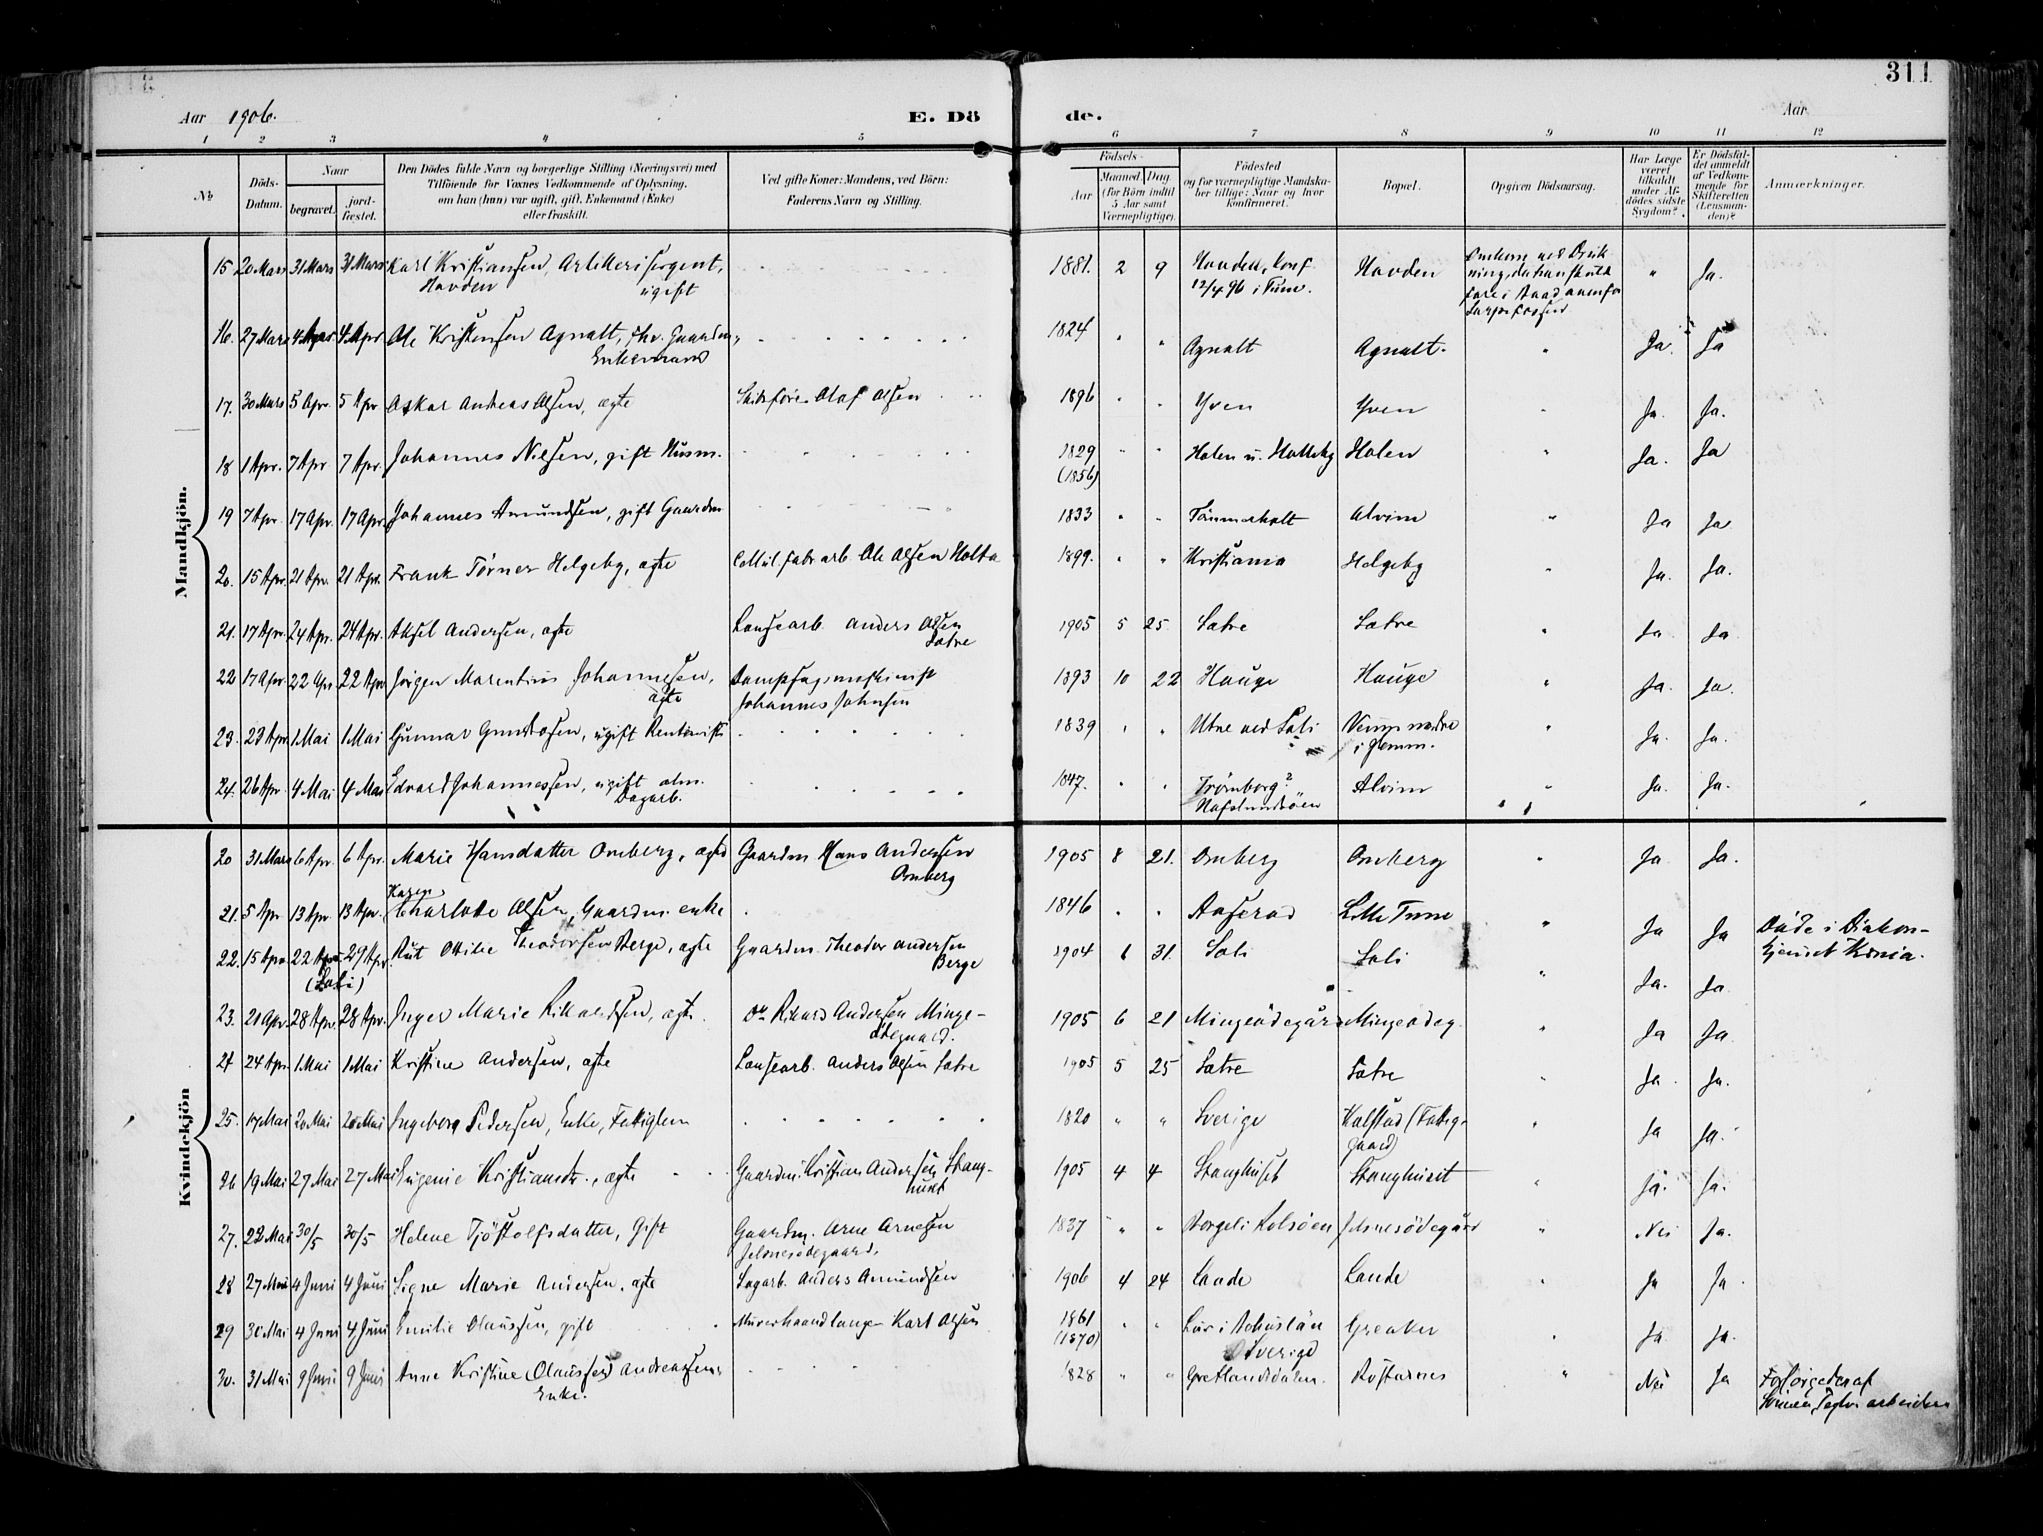 311
Aar 1906. E. Dö de. Aar
1 2 3 4 5 6 7 8 9 10 11 12
No
Döds-Datum.
Naar
begravet.
jord-fæstet.
Den Dödes fulde Navn og borgerlige Stilling (Næringsvei) med
Tilföiende for Voxnes Vedkommende af Oplysning,
om han (hun) var ugift, gift, Enkemand (Enke)
eller fraskilt.
Ved gifte Koner: Mandens, ved Börn:
Faderens Navn og Stilling.
Födsels-
Aar
Maaned. Dag.
(for Börn indtil
5 Aar samt
Værnepligtige).
Födested
og for værnepligtige Mandska-
ber tillige: Naar og hvor
konfirmeret.
Bopæl.
Opgiven Dödsaarsag.
Har Læge
været
tilkaldt
under Af-
dödes sidste
Sygdom?
Er Dödsfal-
det anmeldt
af Vedkom-
mende for
Skifteretten
(Lensman-
den)?
Anmærkninger.
Mandkjön.
15 20 Mars 31 Mars 31 Mars Karl Kristiansen, Artillerisergent, 1881. 2 9 Hovden, konf. Hovden " Ja.
Hovden ugift 12/4 96 i Tune.
16. 27 Mars 4 Apr 4 Apr Ole Kristensen Agnalt, fhv. Gaardm., 1824 " " Agnalt Agnalt. " Ja. Ja
Enkemand
17. 30 Mars 5 Apr. 5 Apr Oskar Andreas Olsen, ægte Skibsfører Olaf Olsen 1896 " " Yven Yven " Ja. Ja.
18 1 Apr. 7 Apr 7 Apr. Johannes Nilsen, gift Husm. 1829 " " Holen u. Halleby Holen " Ja. Ja
(1856)
19 7 Apr. 17 Apr. 17 Apr. Johannes Amundsen, gift Gaardm 1833 " " Tømmerholt Alvim " Ja Ja
20. 15 Apr. 21 Apr. 21 Apr. Frank Tørner Helgeby, ægte Cellul. fabr arb. Ole Olsen Holta 1899. " " Kristiania Helgeby " Ja. Ja.
21. 17 Apr. 24 Apr. 24 Apr. Aksel Andersen, ægte Lensearb. Anders Olsen 1905 5 25 Satre Satre " Ja Ja
Satre
22 17 Apr 22 Apr 22 Apr Jørgen Marentius Johannesen, Dampsagmaskinist 1893 10 22 Hauge Hauge " Ja. Ja.
ægte Johannes Johnsen
23. 23 Apr. 1 Mai 1 Mai Gunnar , ugift Rentenist 1839 " " Utne ved Soli " Ja. Ja.
24. 26 Apr. 4 Mai 4 Mai Edvard Johannessen, ugift alm. 1847. " " Trømborg? Alvim " Ja. Ja.
Dagarb. Hafslundsöen
Kvindekjön
20 31 Mars 6 Apr. 6 Apr. Marie Hansdatter Omberg, ægte Gaardm Hans Andersen 1905 8 21. Omberg Omberg " Ja Ja.
Omberg
Karen
21. 5 Apr 13 Apr 13 Apr. Charlotte Olsen, Gaardm. enke 1846 " " Aaserød Lille Tune " Ja Ja Døde i Diakon-
22. 15 Apr 22 Apr 29 Apr Rut Otilie Theodorsen Berge, ægte Gaardm. Theodor Andersen 1904 31. Soli Soli " Ja. Ja hjemmet Kr.nia.
(Soli) Berge
23. 21 Apr. 28 Apr. 28 Apr. Inger Marie Rikardsen, ægte. Do Rikard Andersen Minge- 1905 6 21 Mingeødegård Mingeødeg. " Ja Ja
ødegaard.
24 24 Apr. 1 Mai 1 Mai Kristine Andersen, ægte Lensearb. Anders Olsen Satre 1905 5 25 Satre Satre " Ja. Ja.
25. 17 Mai 20 Mai 20 Mai Ingeborg Pedersen, Enke, Fattiglem 1820 " " Sverige Kalstad (Fattig- " Ja Ja.
gaard)
26 19 Mai 27 Mai 27 Mai Eugenie Kristiansdtr., ægte Gaardm. Kristian Andersen Stang- 1905 4 4 Stanghuset Stanghuset " Ja. Ja.
huset
27. 22 Mai 30/5 30/5 Helene Tjöstolfsdatter, Gift Gaardm. Arne Arnesen 1837 " " Borgeli Rolsøen Jelsnesödegård " Nei Ja.
Jelsnesödegaard.
28 27 Mai 4 Juni 4 Juni Signe Marie Andersen, ægte Sagarb. Anders Amundsen 1906 4 24 Lande Lande " Ja Ja
29 30 Mai 4 Juni 4 Juni Emilie Olaussen, gift Murerhaandlanger Karl Olsen 1861 " " Lur i Bohuslän Greaker " Ja Ja.
(1870) Sverige
30. 31 Mai 9 Juni 9 Juni Anne Kristine Olaussen Andreassen, 1828 " " Grætlandsdalen. Røstornes " Nei Ja Forsørgedes af
Enke. Sønnen, arbeider